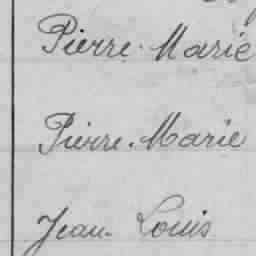 Pierre. Marie
Pierre. Marie
Jean. Louis